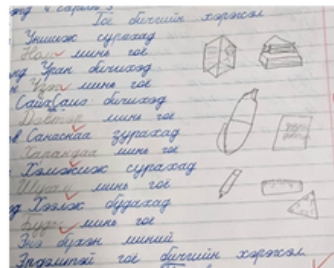 Гоё бичгийн хэрэгсэл
Уншиж сурахад
Ном минь гоё
Уран бичихэд
Үзэг минь гоё
Сайхан бичихэд
Дэвтэр минь гоё
Санаснаа зурахад
Харандаа минь гоё
Хэмжиж сурахад
Шугам минь гоё
Хээлж будахад
Будаг минь гоё
Энэ бүхэн миний
Эрдэмтэй гоё бичгийн хэрэгсэл